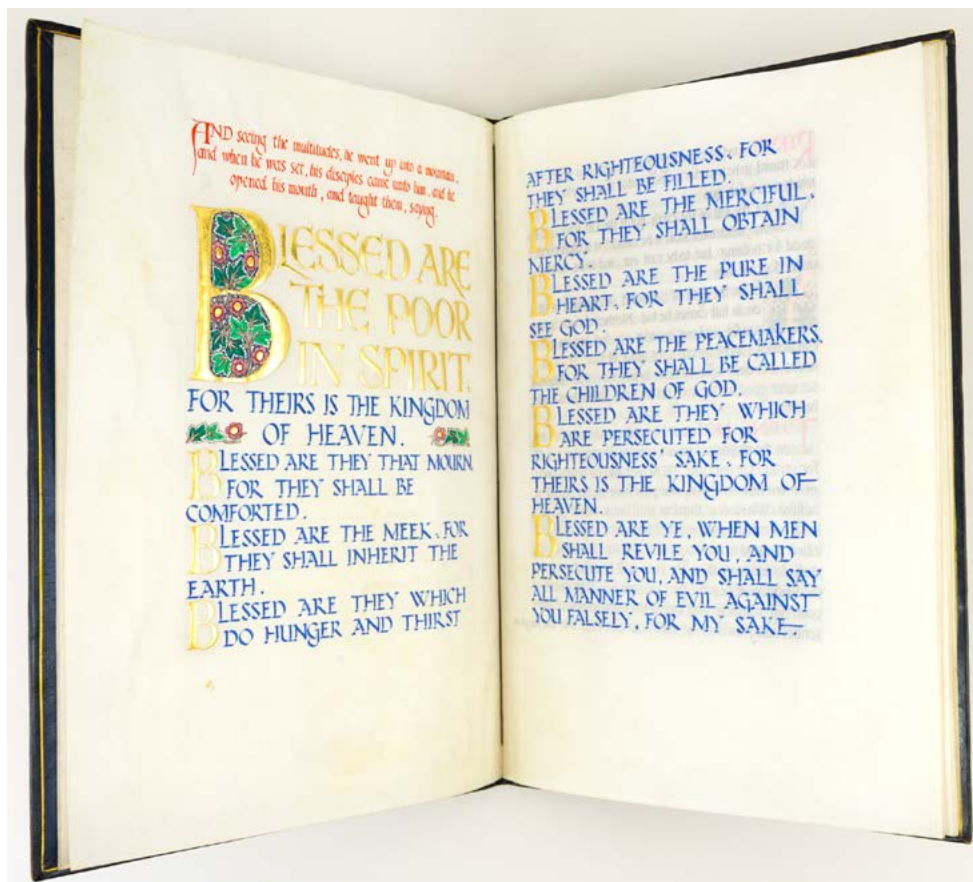 AND seeing the multitudes, he went up into a mountain,
and when he was set, his disciples came unto him, and he
opened his mouth, and taught them, saying.
BLESSED ARE
THE POOR
IN SPIRIT.
FOR THEIRS IS THE KINGDOM
OF HEAVEN.
BLESSED ARE THEY THAT MOURN.
FOR THEY SHALL BE
COMFORTED.
BLESSED ARE THE MEEK, FOR
THEY SHALL INHERIT THE
EARTH.
BLESSED ARE THEY WHICH
DO HUNGER AND THIRST
AFTER RIGHTEOUSNESS, FOR
THEY SHALL BE FILLED.
BLESSED ARE THE MERCIFUL,
FOR THEY SHALL OBTAIN
MERCY.
BLESSED ARE THE PURE IN
HEART, FOR THEY SHALL
SEE GOD.
BLESSED ARE THE PEACEMAKERS,
FOR THEY SHALL BE CALLED
THE CHILDREN OF GOD.
BLESSED ARE THEY WHICH
ARE PERSECUTED FOR
RIGHTEOUSNESS' SAKE, FOR
THEIRS IS THE KINGDOM OF
HEAVEN.
BLESSED ARE YE, WHEN MEN
SHALL REVILE YOU, AND
PERSECUTE YOU, AND SHALL SAY
ALL MANNER OF EVIL AGAINST
YOU FALSELY, FOR MY SAKE.